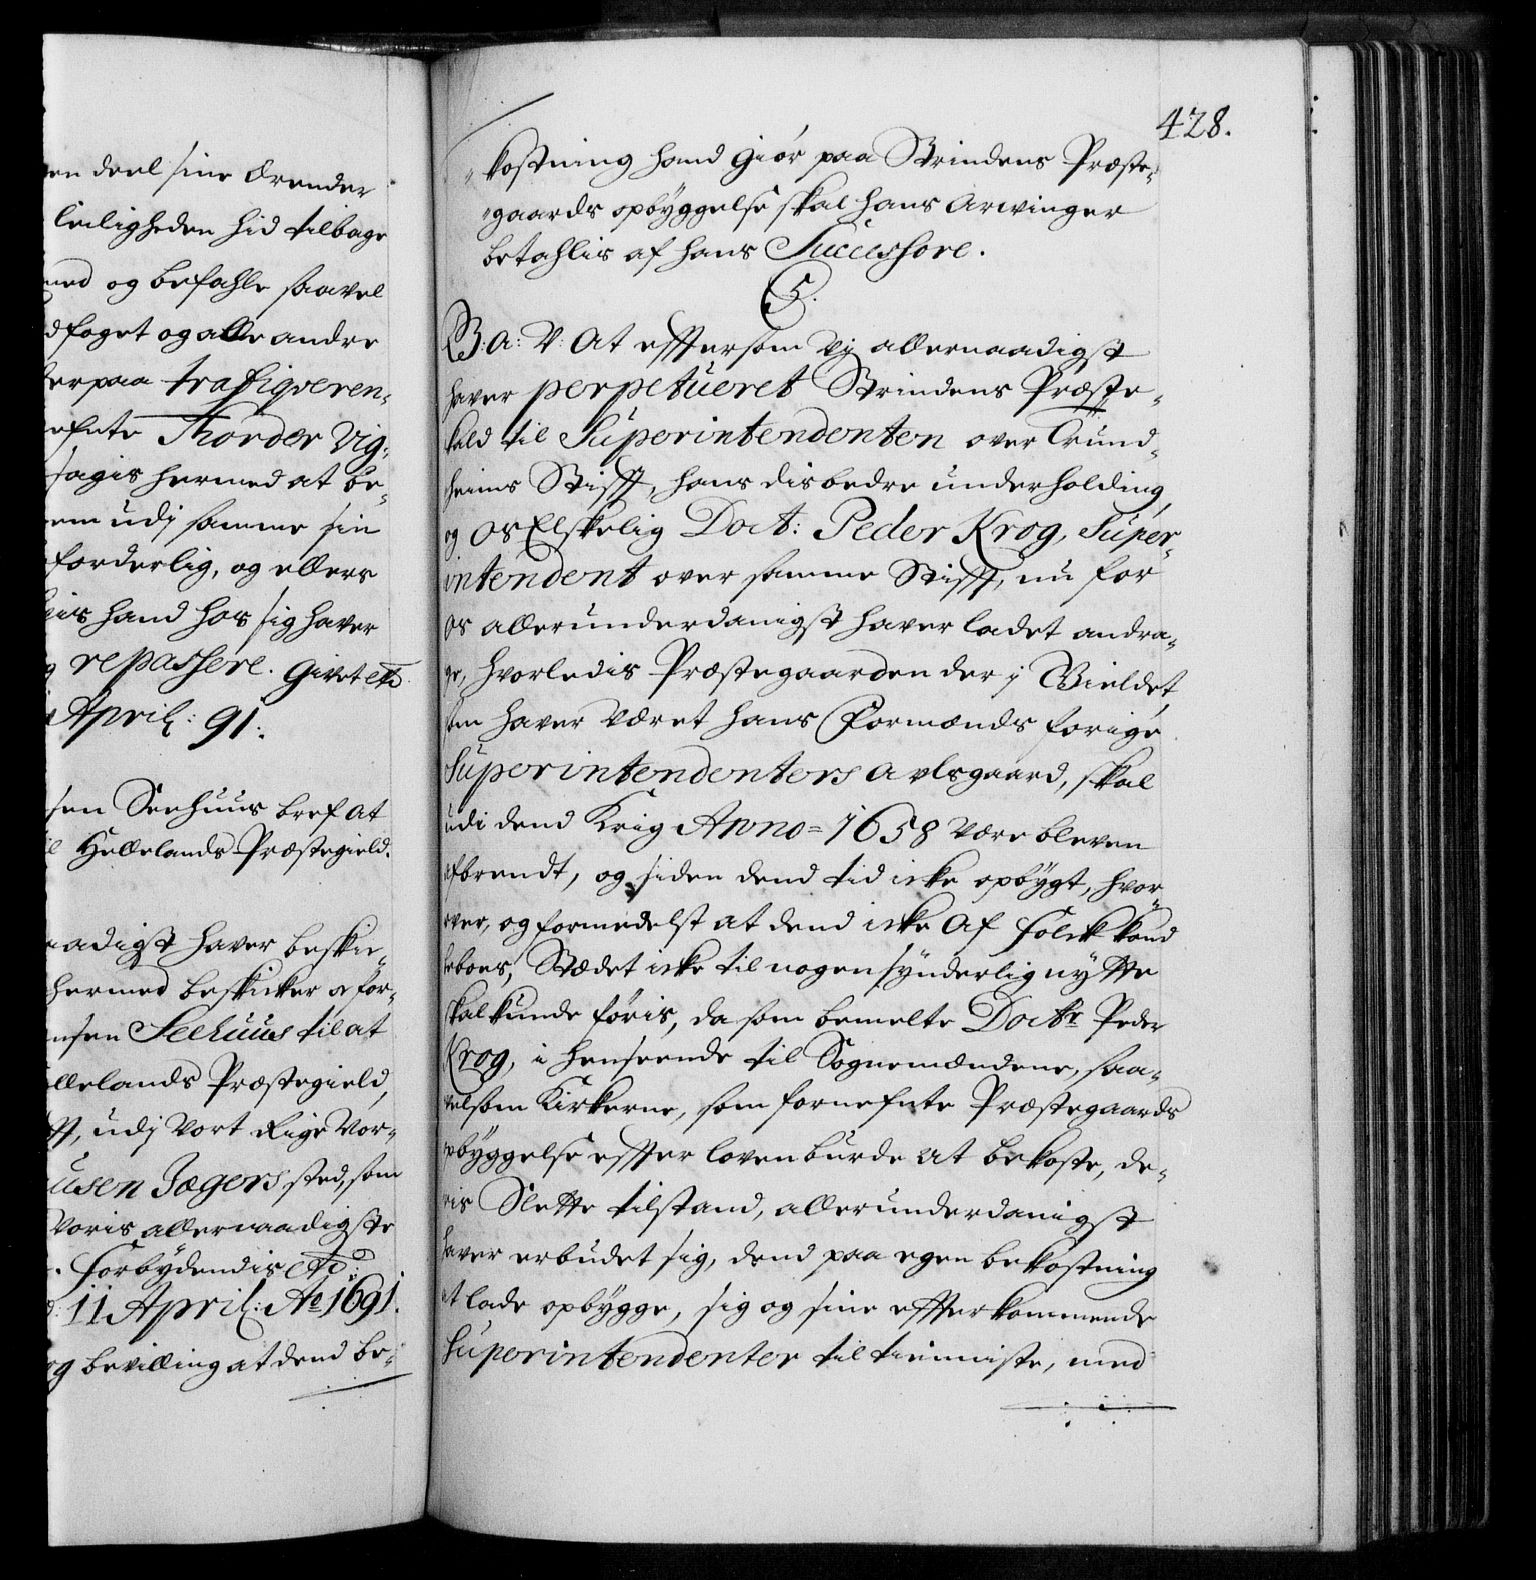 en deel sine Ærender
leiligheden hid tilbage
med og befahle saavel
dfoget og alle andre
erpaa trafiqveren-
efnte Thorder Vig-
sagis hermed at be-
em udj samme sin
forderlig, og ellers
his hand hos sig haver
g repassere. Givet etc.
April: 91:
sen Seehuus bref at
il Hellelands Præstegield.
aadigst haver beskie-
hermed beskicker oc for-
nsen Seehuus til at
ellelands Præstegield,
ft, udj Vort Rige Nor-
usen Jægers sted, som
Voris allernaadigste
. Forbydendis etc:
d: 11 April: Ao 1691.
og bevilling at dend be-
428.
"kostning hand giør paa Strindens Præste-
"gaards opbyggelse skal hans Arwinger
betahlis af hans Successore.
C5.
G: A: V: At efftersom Vj allernaadigst
haver perpetueret Strindens Præste-
kald til Superintendenten over Trund-
heims Stifft, hans dis bedre underholding,
og Os Elskelig Doct: Peder Krog, Super-
intendent over samme Stifft, nu for
Os allerunderdanigst haver ladet andra-
ge, hvorledis Præstegaarden der j Gieldet,
som haver været hans Formænds forige
Superintendenters Avlsgaard, skal
udi dend Krig Anno = 1658 være bleven
afbrendt, og siden dend tid icke opbygt, hvor-
over, og formedelst at dend icke af folck kand
beboes, Stædet icke til nogen synderlig nytte
skal kunde føris, da som bemelte Doctr Peder
Krog, i henseende til Sognemændene, saa-
velsom Kirkerne, som fornefnte Præstegaards
opbyggelse effter loven burde at bekoste, de-
ris Slette tilstand, allerunderdanigst
haver erbudet sig, dend paa egen bekostning
at lade opbygge, sig og sine effterkommende
Superintendenter til tienniste, med